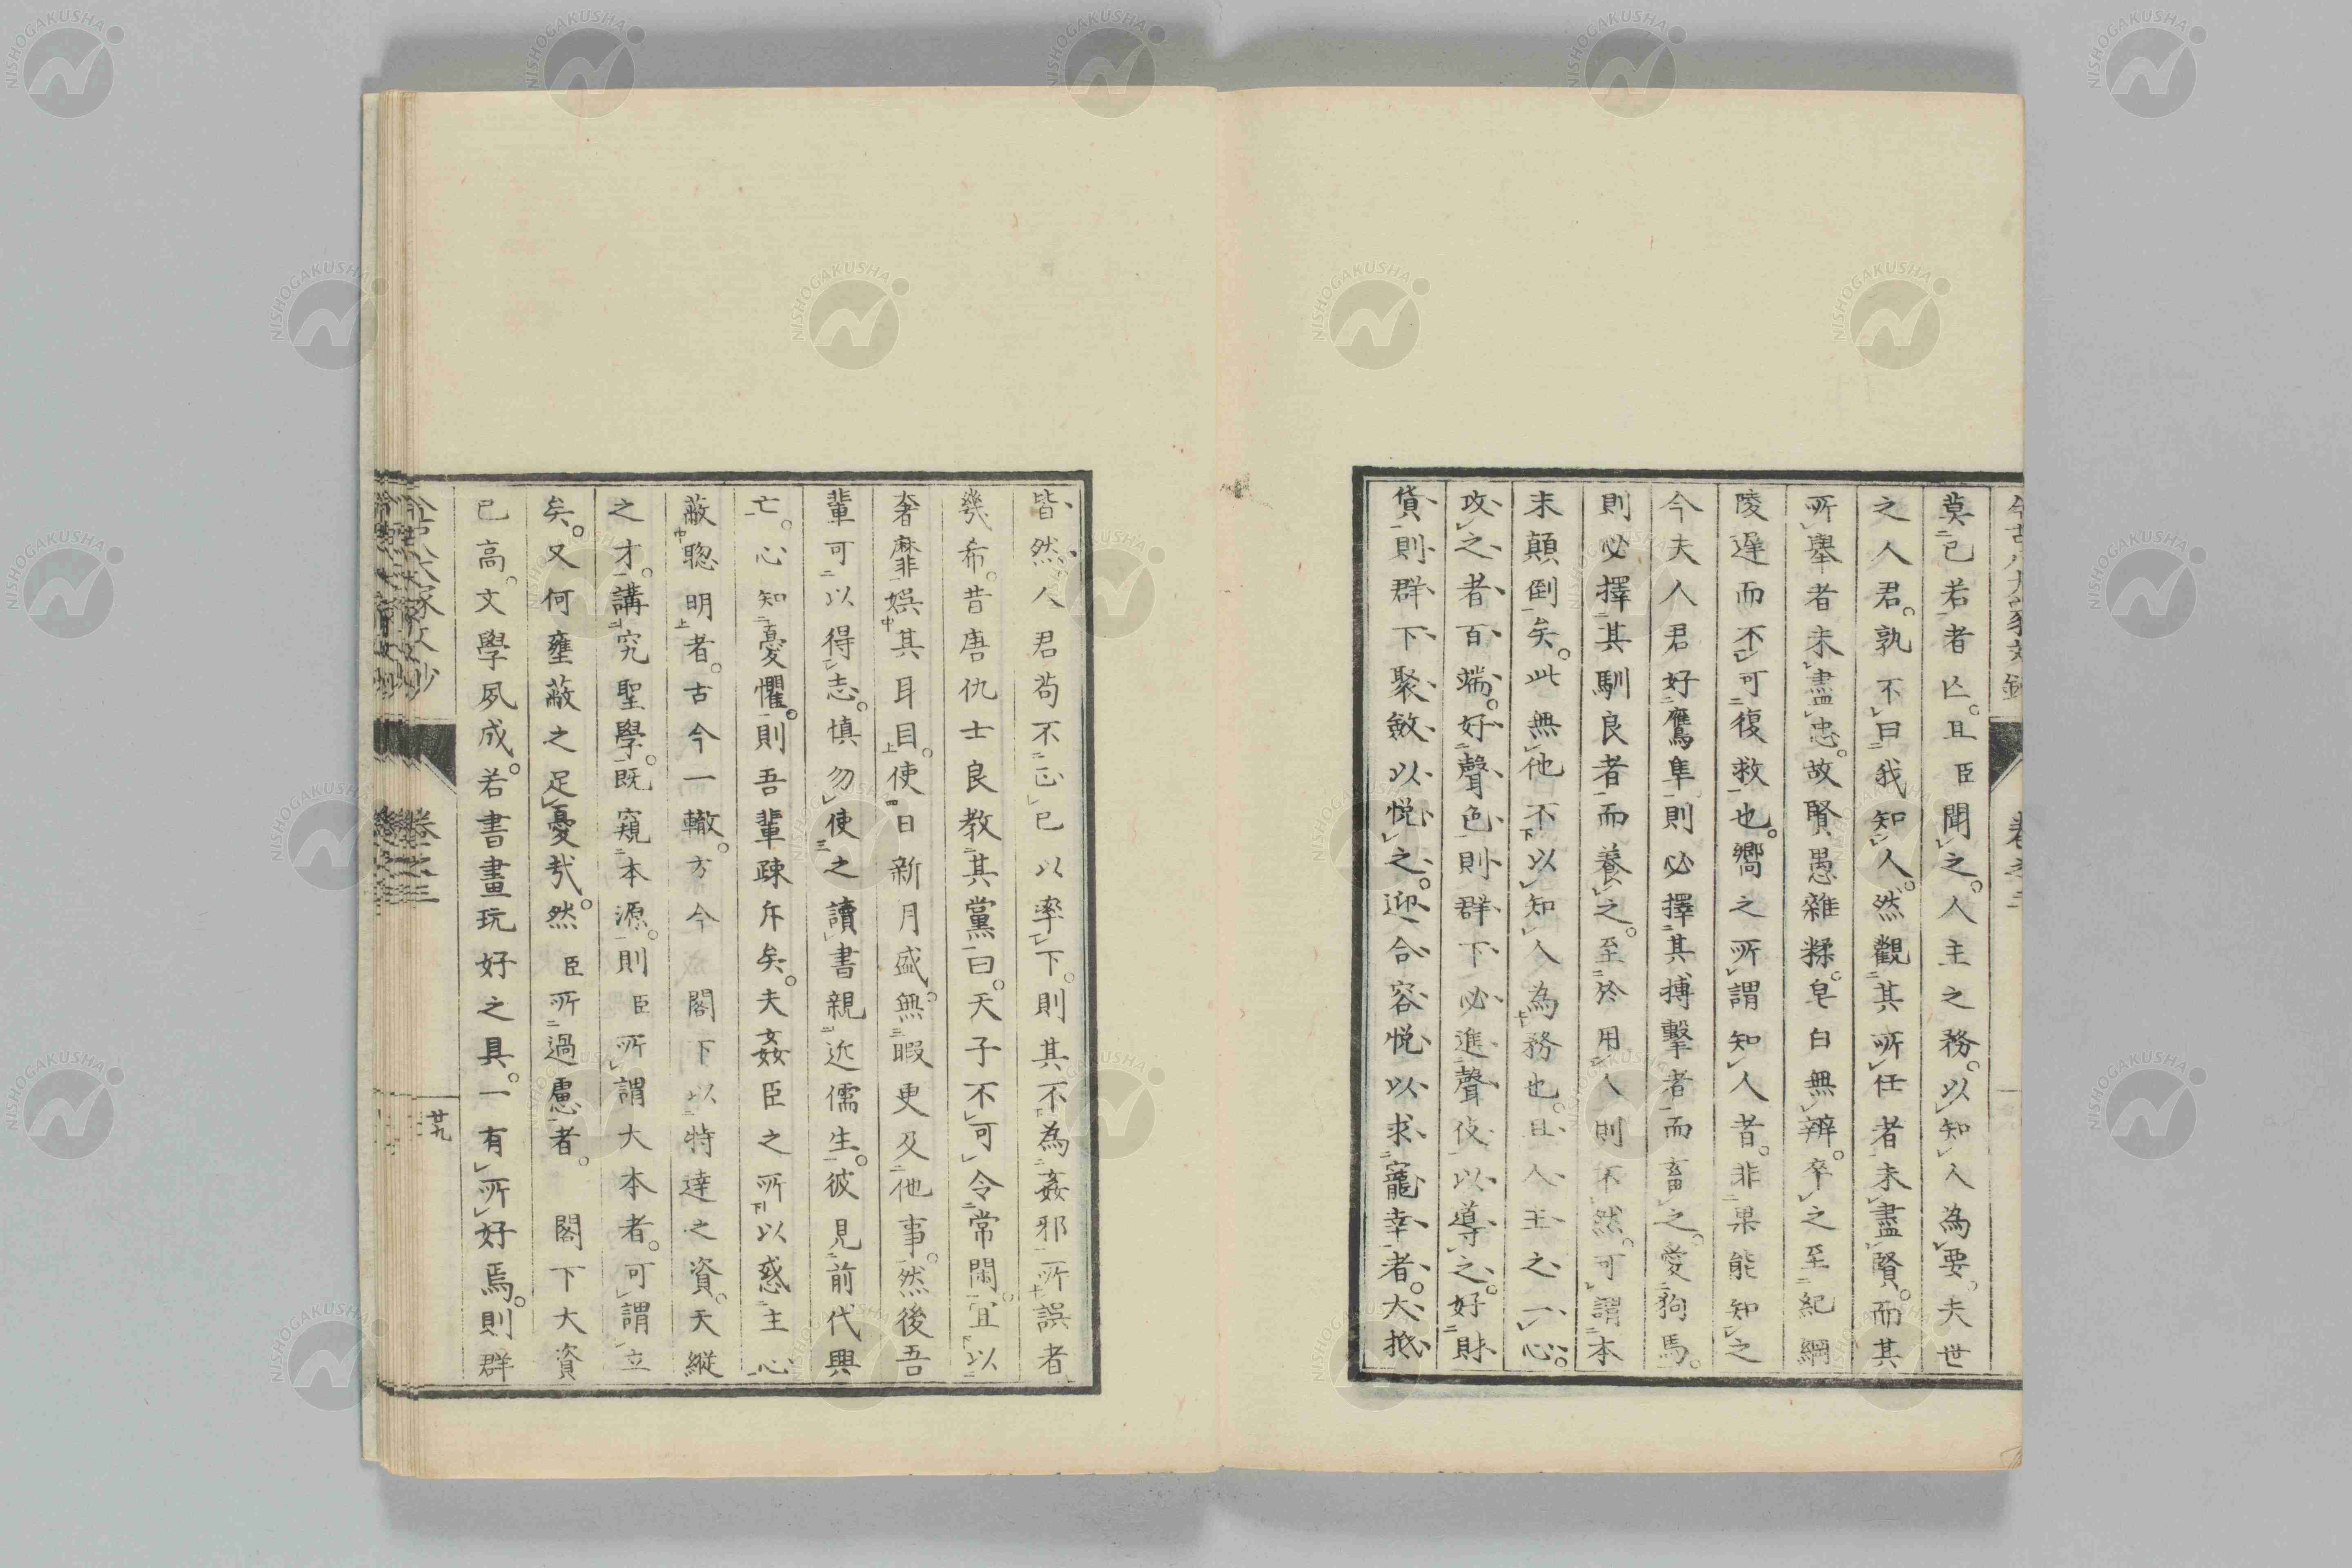 莫己若者亾。且臣聞之。人主之務。以知人為要。夫世
之人君。孰不曰我知人。然觀其所任者。未盡賢。而其
所舉者未盡忠。故賢愚雜糅。皂白無辨。卒之至紀綱
陵遲而不可復救也。嚮之所謂知人者。非果能知之
今夫人君好鷹隼則必擇其搏擊者而畜之。愛狗馬。
則必擇其馴良者而養之。至於用人則不然。可謂本
末顛倒矣。此無他不以知人為務也。且人主之一心。
攻之者百端。好聲色則群下必進聲伎以導之。好財
貨則群下聚斂以悅之。迎合容悅以求寵幸者。大抵
皆然。人君苟不正己以率下。則其不為姦邪所誤者
幾希。昔唐仇士良教其黨曰。天子不可令常閑。宜以
奢靡娛其耳目。使日新月盛。無暇更及他事。然後吾
輩可以得志。慎勿使之讀書親近儒生。彼見前代興
亡。心知憂懼。則吾輩疎斥矣。夫姦臣之所以惑主心
蔽聰明者。古今一轍。方今閣下以特達之資。天縱
之才。講究聖學。既窺本源。則臣所謂大本者。可謂立
矣。又何壅蔽之足憂哉。然臣所過慮者。閣下大資
已高。文學夙成。若書畫玩好之具。一有所好焉。則群
卷之三
廿九
NISHOGAKUSHA